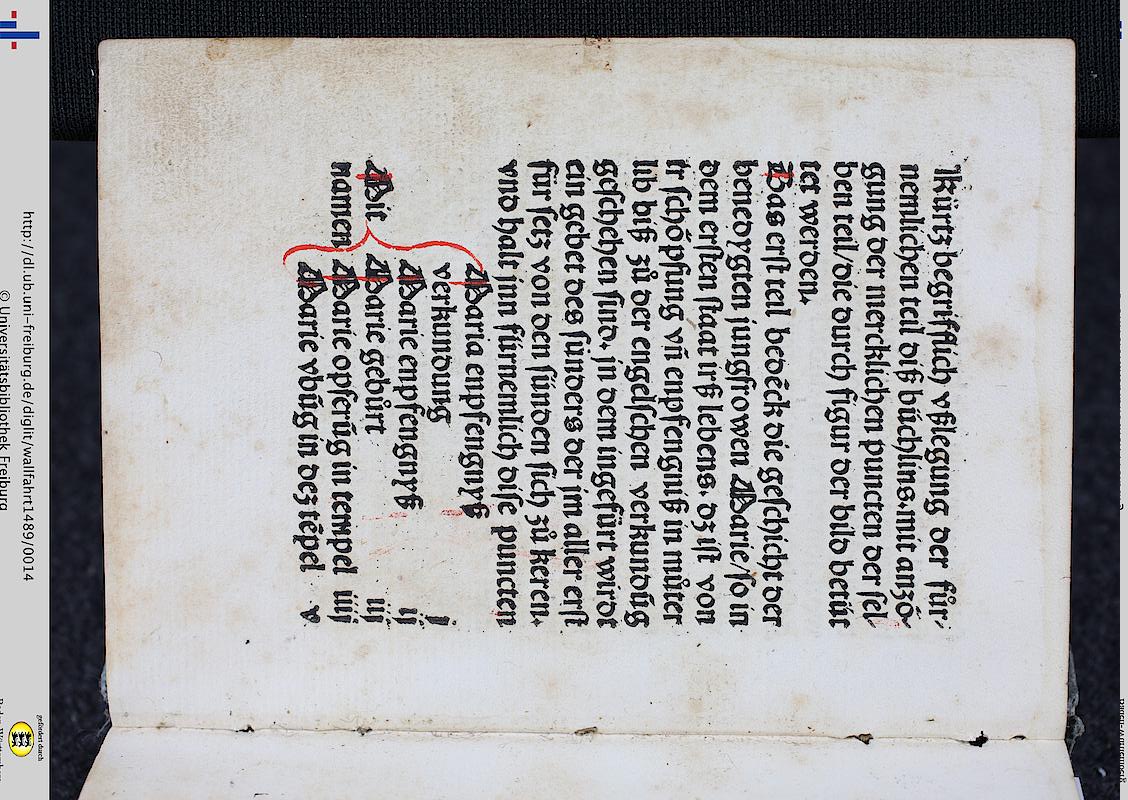 Kürtz begrifflich vßlegung der für/
nemlichen teil diß büchlins.mit anzö-
gung der mercklichen puncten der sel-
ben teil/die durch figur der bild betüt
tet werden.
Das erst teil bedēckt die geschicht der
benedygten jungfrowen Marie/so in
dem ersten staat irß lebens. dz ist von
ir schöpfung vn̄ enpfengniß in můter
lib biß zů der engelschen verkundūg
geschehen sind. in dem ingefürt wirdt
ein gebet des sünders der jm aller erst
für setz von den sünden sich zů keren.
vnd halt jnn fürnemlich dise puncten
Maria enpfengnyß
verkundung j
Mit Marie enpfengnyß ij
namen Marie gebůrt iij
Marie opferūg in tempel iiij
Marie vbūg in dez tēpel v
http://dl.ub.uni-freiburg.de/diglit/wallfahrt1489/0014
© Universitätsbibliothek Freiburg
gefördert durch